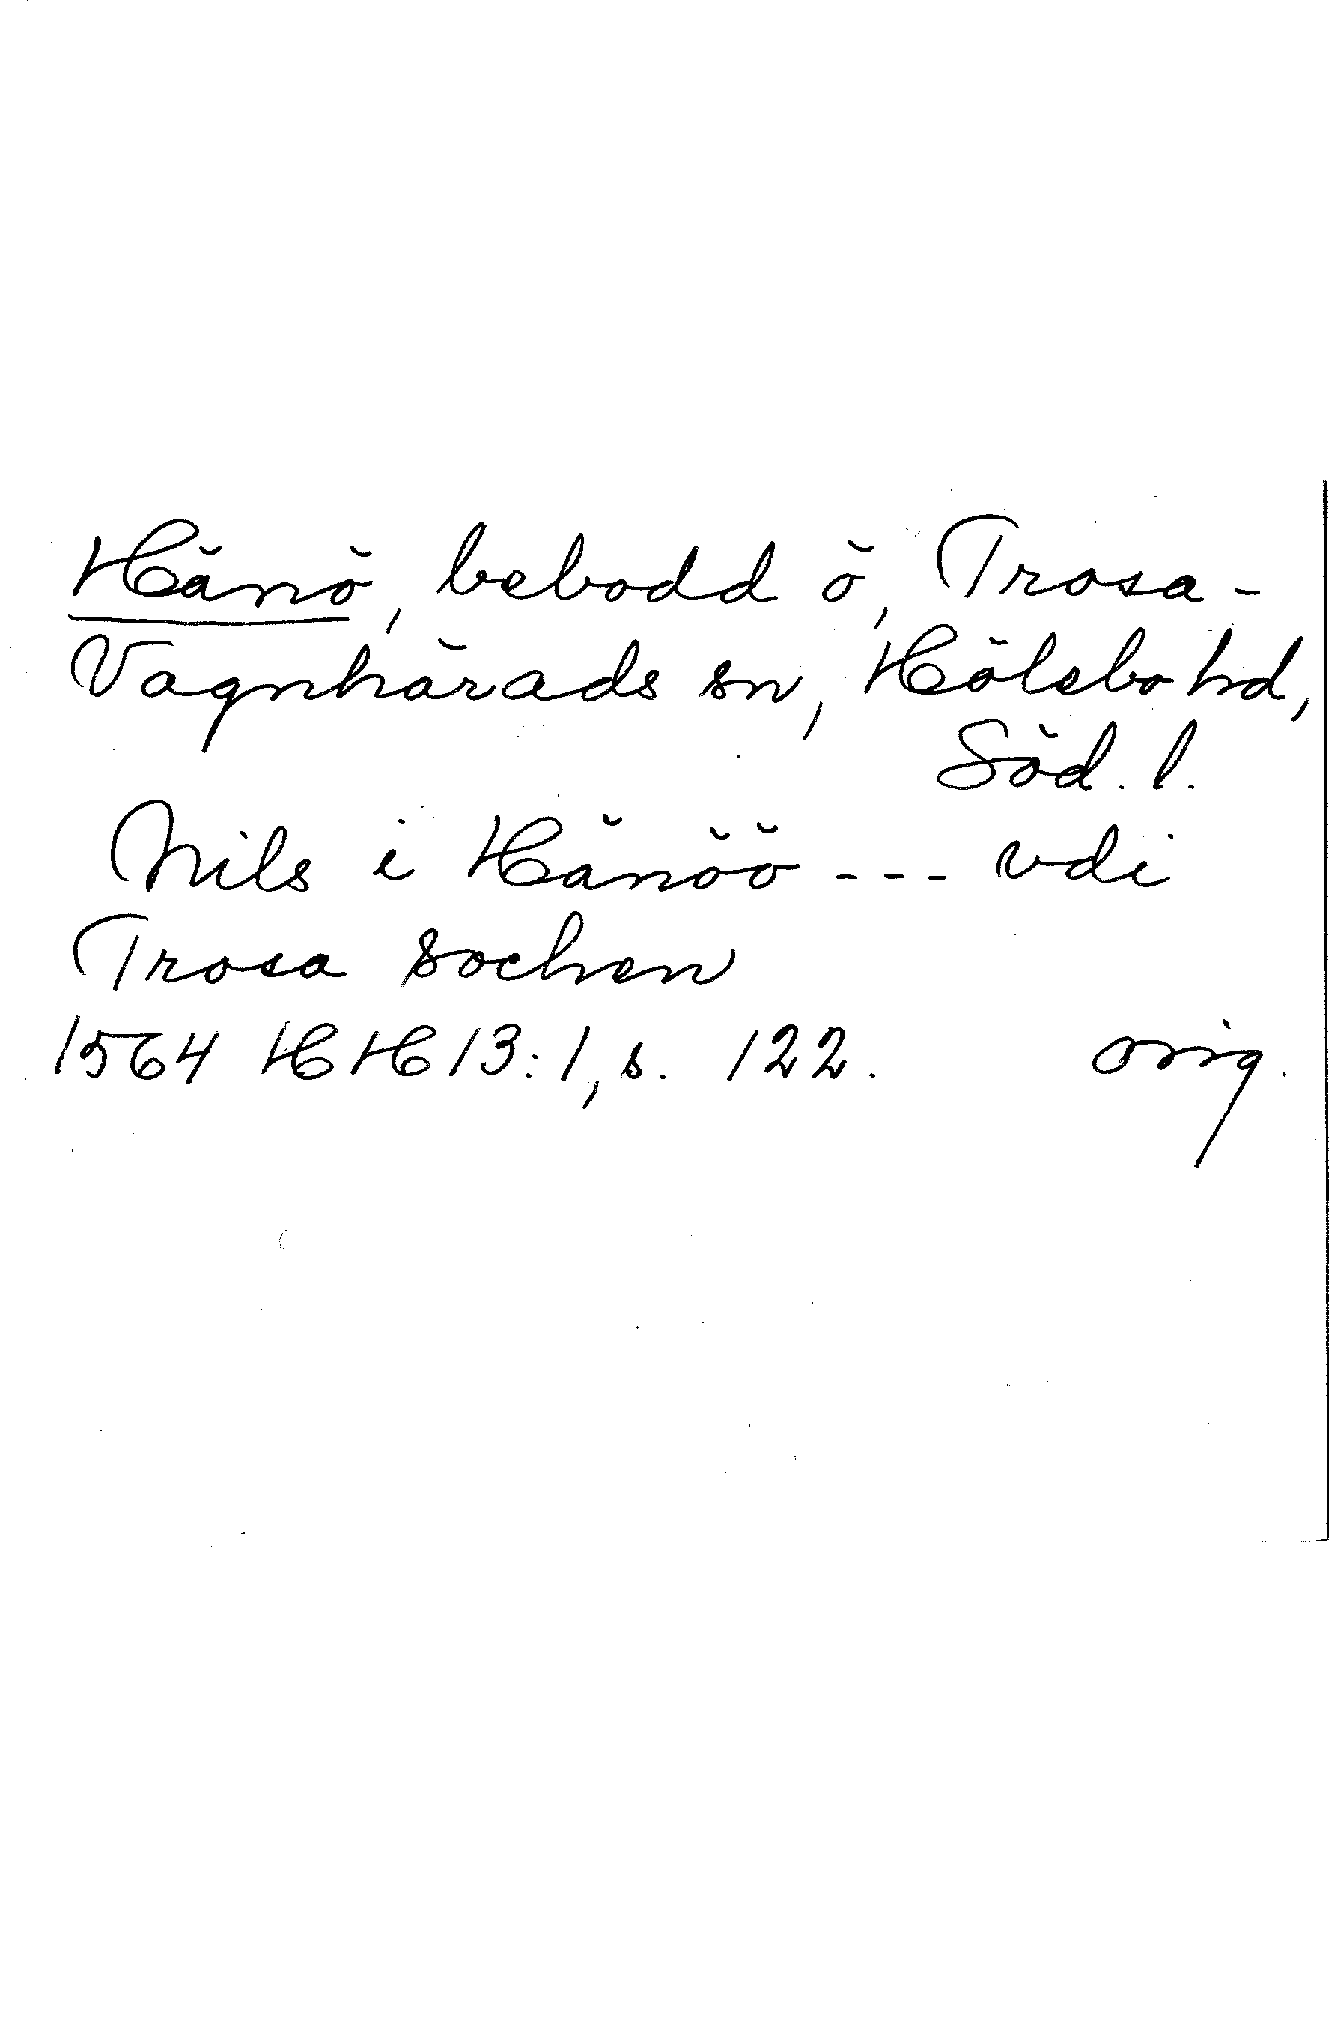 Hänö, bebodd ö, Trosa-
Vagnhärads sn, Hölebo hd,
Söd. l.
Nils i Hänöö --- vdi
Trosa sochen
1564 HH 13:1, s. 122. orig.